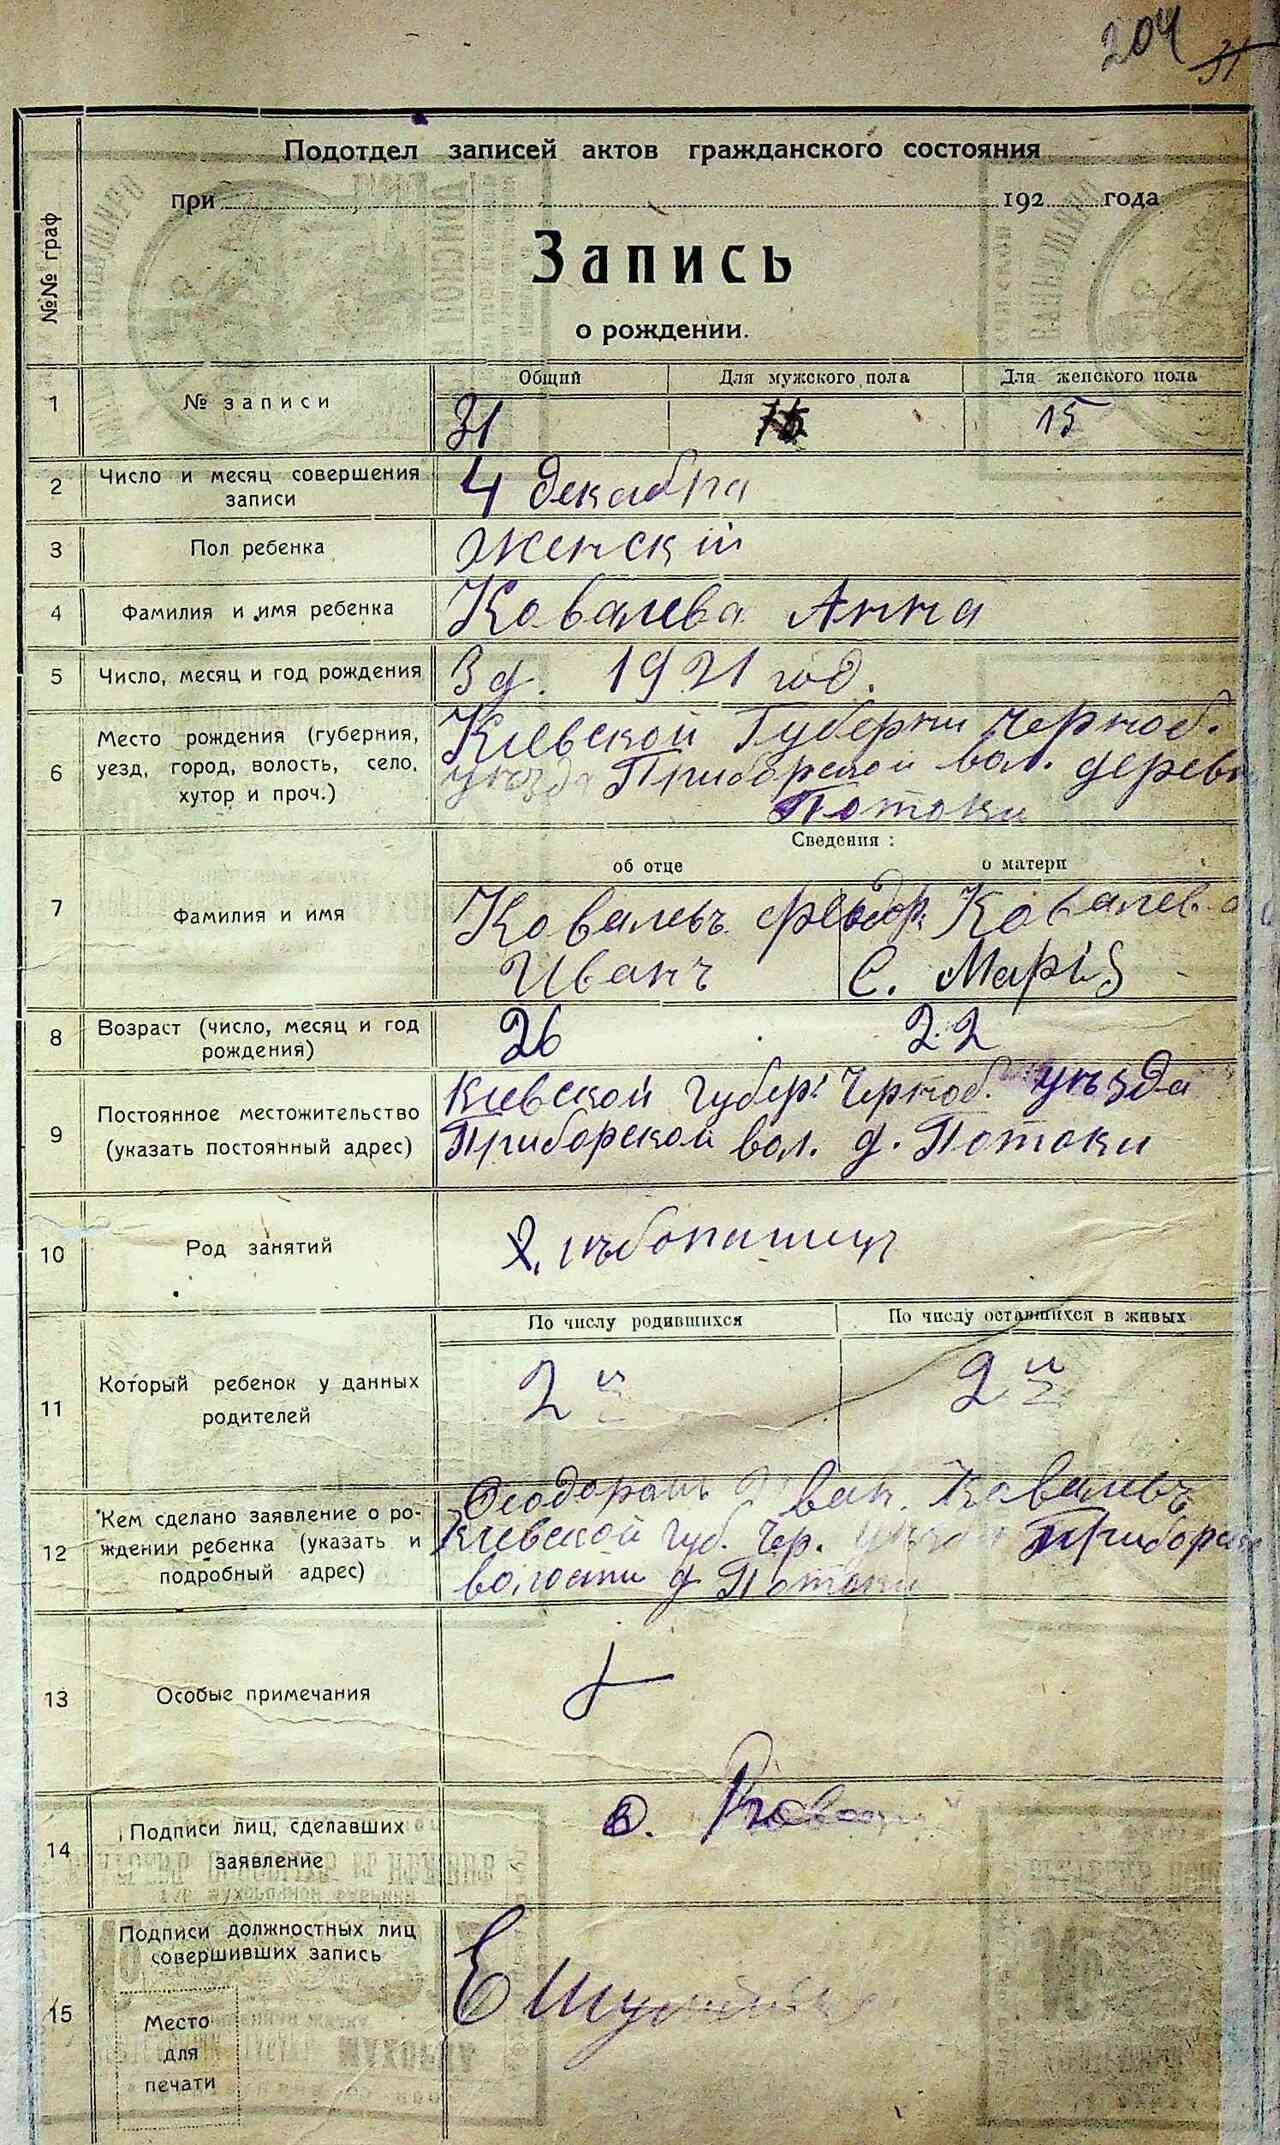 204
31
Подотдел записей актов гражданского состояния
при 192 года
Запись
о рождении.
№№ граф
Общий Для мужского пола Для женского пола
1 № записи 31 15
2 Число и месяц совершения
записи
4 декабря
3 Пол ребенка Женскій
4 Фамилия и имя ребенка Ковалева Анна
5 Число, месяц и год рождения 3 д. 1921 год.
6 Место рождения (губерния,
уезд, город, волость, село,
хутор и проч.)
Кіевской Губерни Черноб.
уѣзда Приборской вол. дерев
Потоки
Сведения:
об отце о матери
7 Фамилия и имя
Ковалевъ Феодор. Ковалева
Иванъ Є. Марія
8 Возраст (число, месяц и год
рождения)
26 22
9 Постоянное местожительство
(указать постоянный адрес)
Кіевской губер. Черноб. уѣзда
Приборской вол. д. Потоки
10 Род занятий Хлѣбопашец
По числу родившихся По числу оставшихся в живых
11 Который ребенок у данных
родителей
2й 2й
12 Кем сделано заявление о ро-
ждении ребенка (указать и
подробный адрес)
Ковалевъ
Кіевской губ. Чер. уѣзда Приборской
волости д Потоки
13 Особые примечания
14 Подписи лиц, сделавших
заявление
15 Подписи должностных лиц
совершивших запись
Место
для
печати